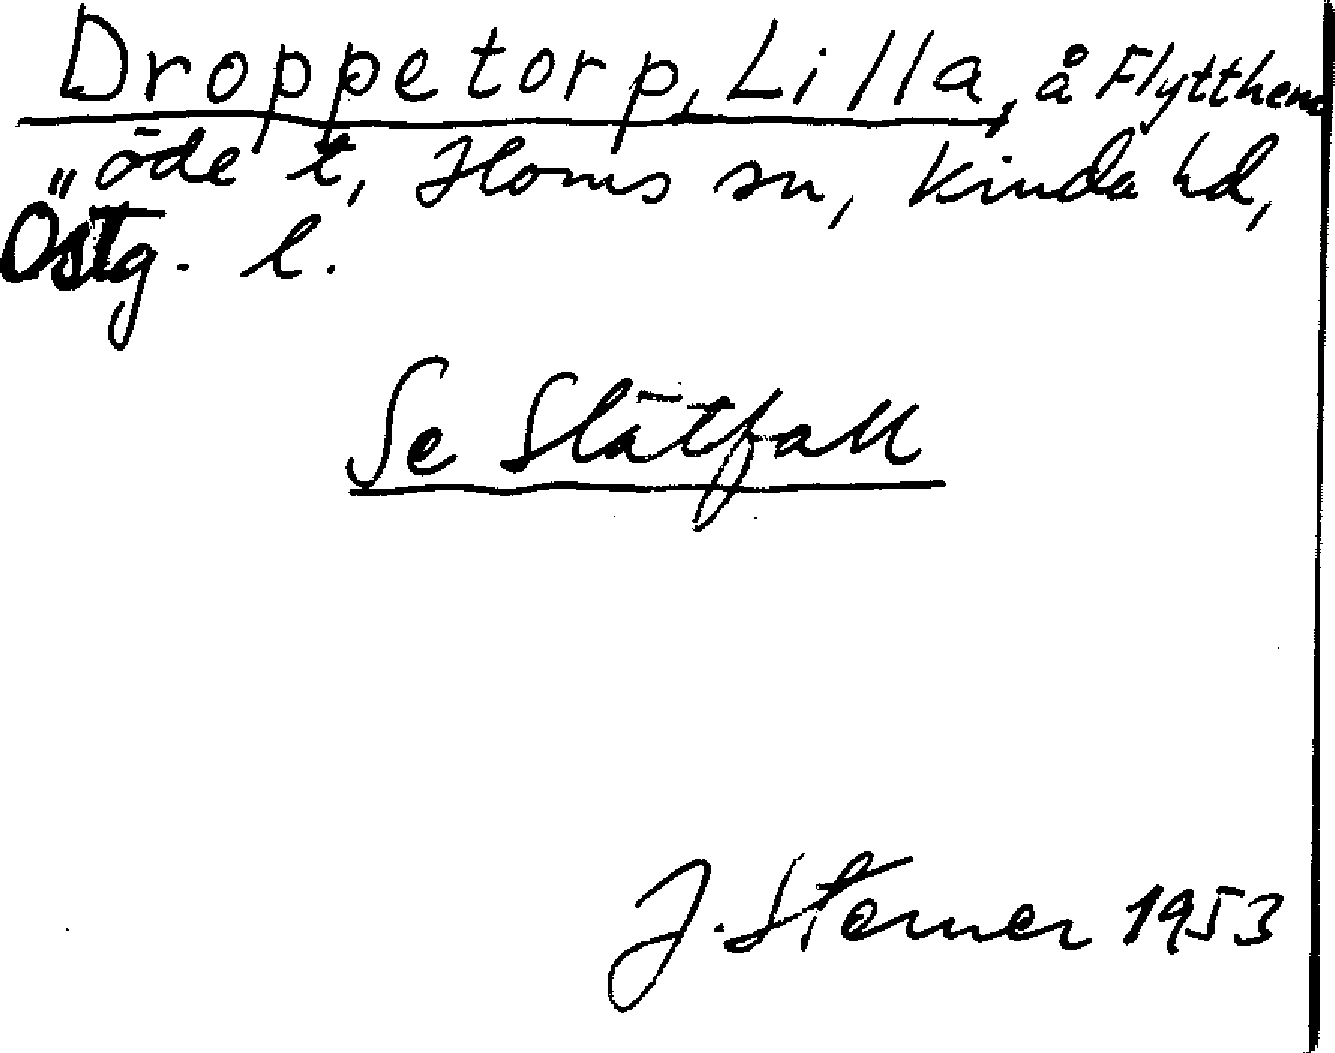 Droppetorp, Lilla, å Flytthem
öde t, Horns sn, Kinda hd,
Östg. l.
Se Slätfall
J. Sterner 1953